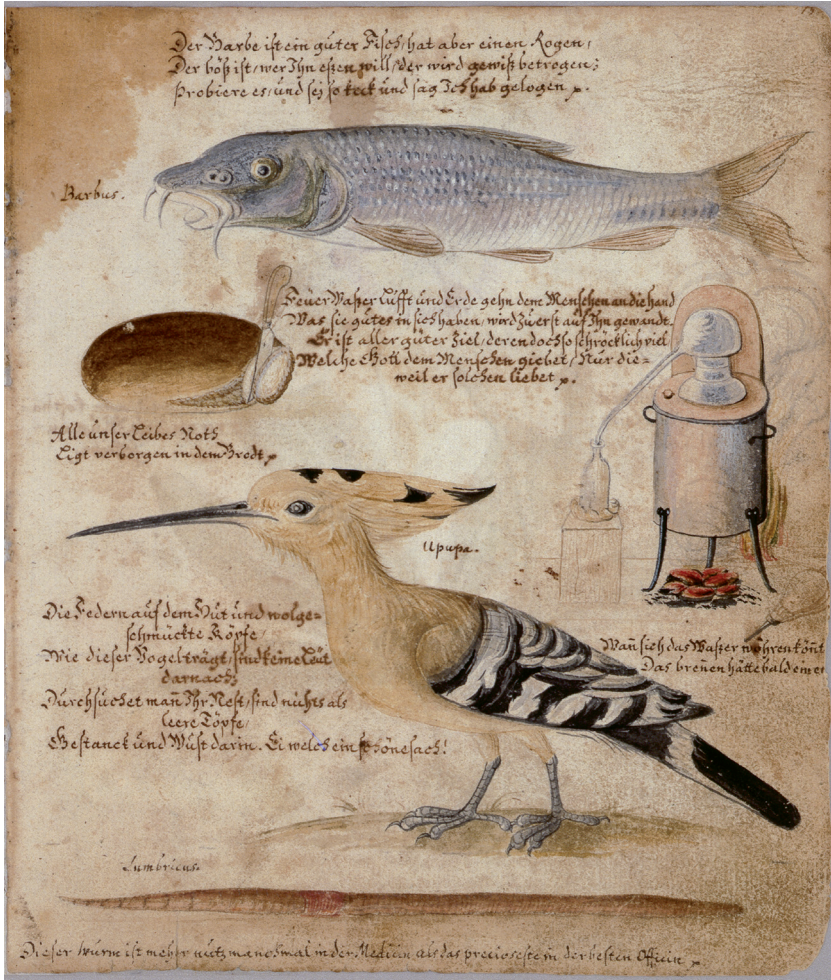 Der Barbe ist ein guter Fisch, hat aber einen Rogen,
Der böß ist, wer Ihn eßen will, der wird gewiß betrogen;
Probiere es, und sej so keck und sag Ich hab gelogen
Barbus.
Feuer Waßer Lufft und Erde gehn dem Menschen an die hand
Was sie gutes in sich haben, wird zu erst auf Ihn gewandt.
Er ist aller guter Ziel, deren doch so schröcklich viel
Welche Gott dem Menschen giebet, Nur die=
weil er solchen liebet
Alle unser Leibes Noth
Ligt verborgen in dem Brodt
Upupa.
Die Federn auf dem Hut und wolge=
schmückte Köpfe
Wie dieser Vogel trägt, sind keine Leut
darnach;
Durchsuchet mañ Ihr Nest, sind nichts als
leere Töpfe,
Gestanck und Wust darin. Ei welch ein schöne sach!
Wañ sich das Waßer
Das breñen hätte bald einen
Lumbricus.
Dieser wurm ist mehr nutz manchmal in der Medicin als das precioseste in der besten Officin